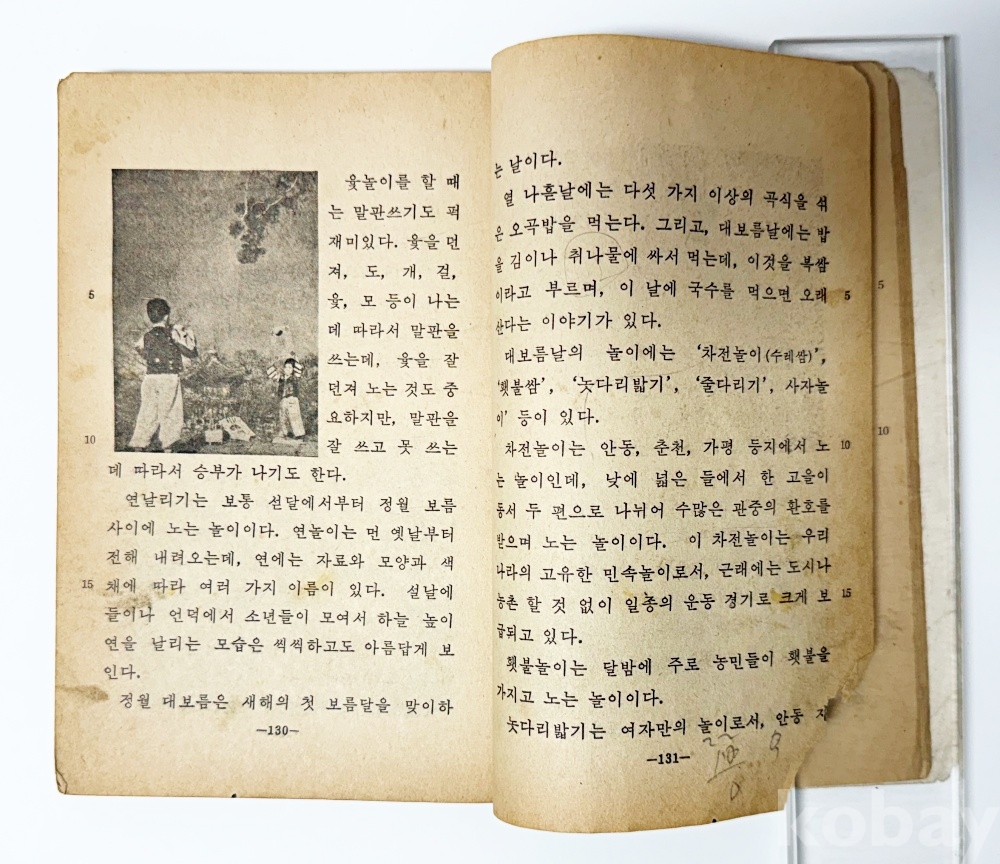 윷놀이를 할 때
는 말판쓰기도 퍽
재미있다. 윷을 던
져, 도, 개, 걸,
윷, 모 등이 나는
5
데 따라서 말판을
쓰는데, 윷을 잘
던져 노는 것도 중
요하지만, 말판을
잘 쓰고 못 쓰는
10
데 따라서 승부가 나기도 한다.
연날리기는 보통 섣달에서부터 정월 보름
사이에 노는 놀이이다. 연놀이는 먼 옛날부터
전해 내려오는데, 연에는 자료와 모양과 색
채에 따라 여러 가지 이름이 있다. 설날에
15
들이나 언덕에서 소년들이 모여서 하늘 높이
연을 날리는 모습은 씩씩하고도 아름답게 보
인다.
정월 대보름은 새해의 첫 보름달을 맞이하
—130—
는 날이다.
열 나흗날에는 다섯 가지 이상의 곡식을 섞
은 오곡밥을 먹는다. 그리고, 대보름날에는 밥
을 김이나 취나물에 싸서 먹는데, 이것을 복쌈
이라고 부르며, 이 날에 국수를 먹으면 오래
5
산다는 이야기가 있다.
대보름날의 놀이에는 ‘차전놀이(수레쌈)’,
‘횃불쌈’, ‘놋다리밟기’, ‘줄다리기’, 사자놀
이’ 등이 있다.
차전놀이는 안동, 춘천, 가평 등지에서 노
10
는 놀이인데, 낮에 넓은 들에서 한 고을이
동서 두 편으로 나뉘어 수많은 관중의 환호를
받으며 노는 놀이이다. 이 차전놀이는 우리
나라의 고유한 민속놀이로서, 근래에는 도시나
농촌 할 것 없이 일종의 운동 경기로 크게 보
15
급되고 있다.
횃불놀이는 달밤에 주로 농민들이 횃불을
가지고 노는 놀이이다.
놋다리밟기는 여자만의 놀이로서, 안동 지
—131—
5
10
kobay